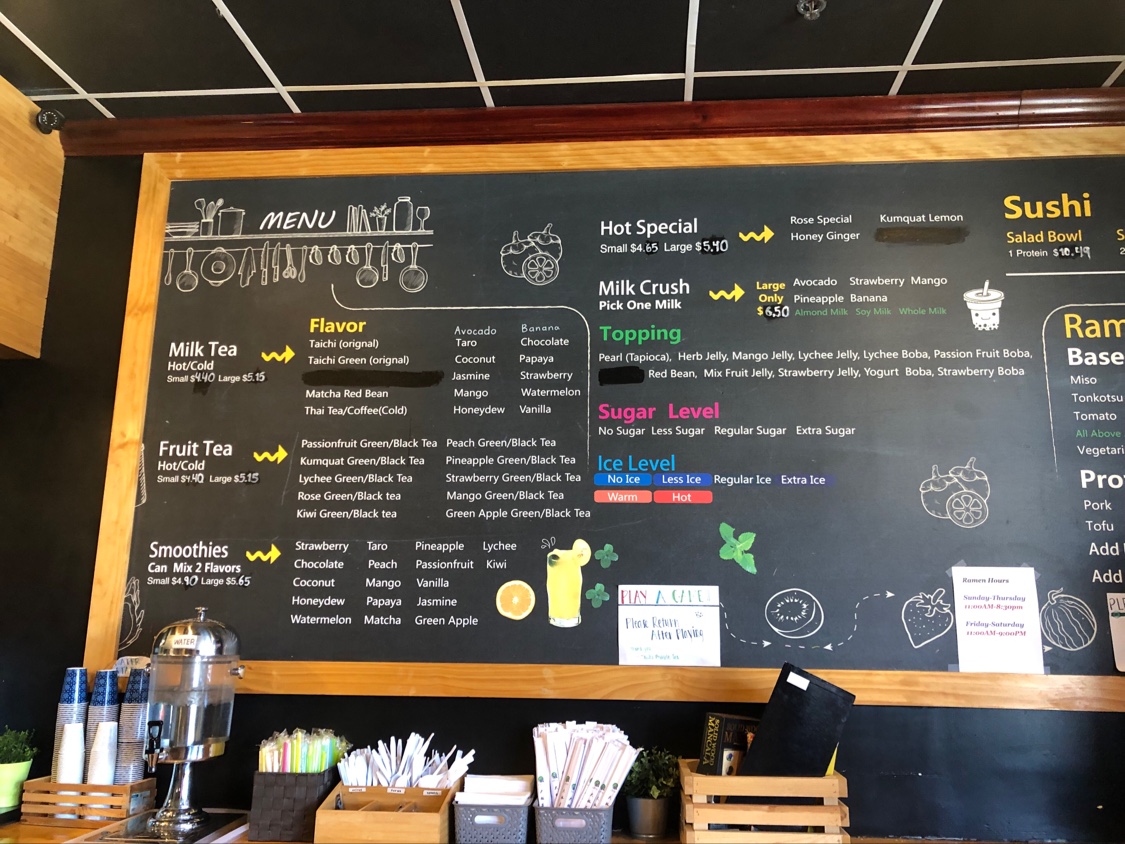 MENU
Milk Tea
Hot/Cold
Small $4.40 Large $5.15
Flavor
Taichi (orignal)
Taichi Green (orignal)
Matcha Red Bean
Thai Tea/Coffee(Cold)
Avocado Banana
Taro Chocolate
Coconut Papaya
Jasmine Strawberry
Mango Watermelon
Honeydew Vanilla
Fruit Tea
Hot/Cold
Small $4.40 Large $5.15
Passionfruit Green/Black Tea Peach Green/Black Tea
Kumquat Green/Black Tea Pineapple Green/Black Tea
Lychee Green/Black Tea Strawberry Green/Black Tea
Rose Green/Black tea Mango Green/Black Tea
Kiwi Green/Black Tea Green Apple Green/Black Tea
Smoothies
Can Mix 2 Flavors
Small $4.90 Large $5.65
Strawberry Taro Pineapple Lychee
Chocolate Peach Passionfruit Kiwi
Coconut Mango Vanilla
Honeydew Papaya Jasmine
Watermelon Matcha Green Apple
Hot Special
Small $4.65 Large $5.40
Rose Special Kumquat Lemon
Honey Ginger
Milk Crush
Pick One Milk
Large
Only
$6.50
Avocado Strawberry Mango
Pineapple Banana
Almond Milk Soy Milk Whole Milk
Topping
Pearl (Tapioca), Herb Jelly, Mango Jelly, Lychee Jelly, Lychee Boba, Passion Fruit Boba,
Red Bean, Mix Fruit Jelly, Strawberry Jelly, Yogurt Boba, Strawberry Boba
Sugar Level
No Sugar Less Sugar Regular Sugar Extra Sugar
Ice Level
No Ice Less Ice Regular Ice Extra Ice
Warm Hot
Sushi
Salad Bowl
1 Protein $10.49
Ram
Base
Miso
Tonkotsu
Tomato
All Above
Vegetari
Pro
Pork
Tofu
Add
Add
PLAY A GAME!
Please Return
After Playing
Ramen Hours
Sunday-Thursday
11:00AM-8:30pm
Friday-Saturday
11:00AM-9:00PM
WATER